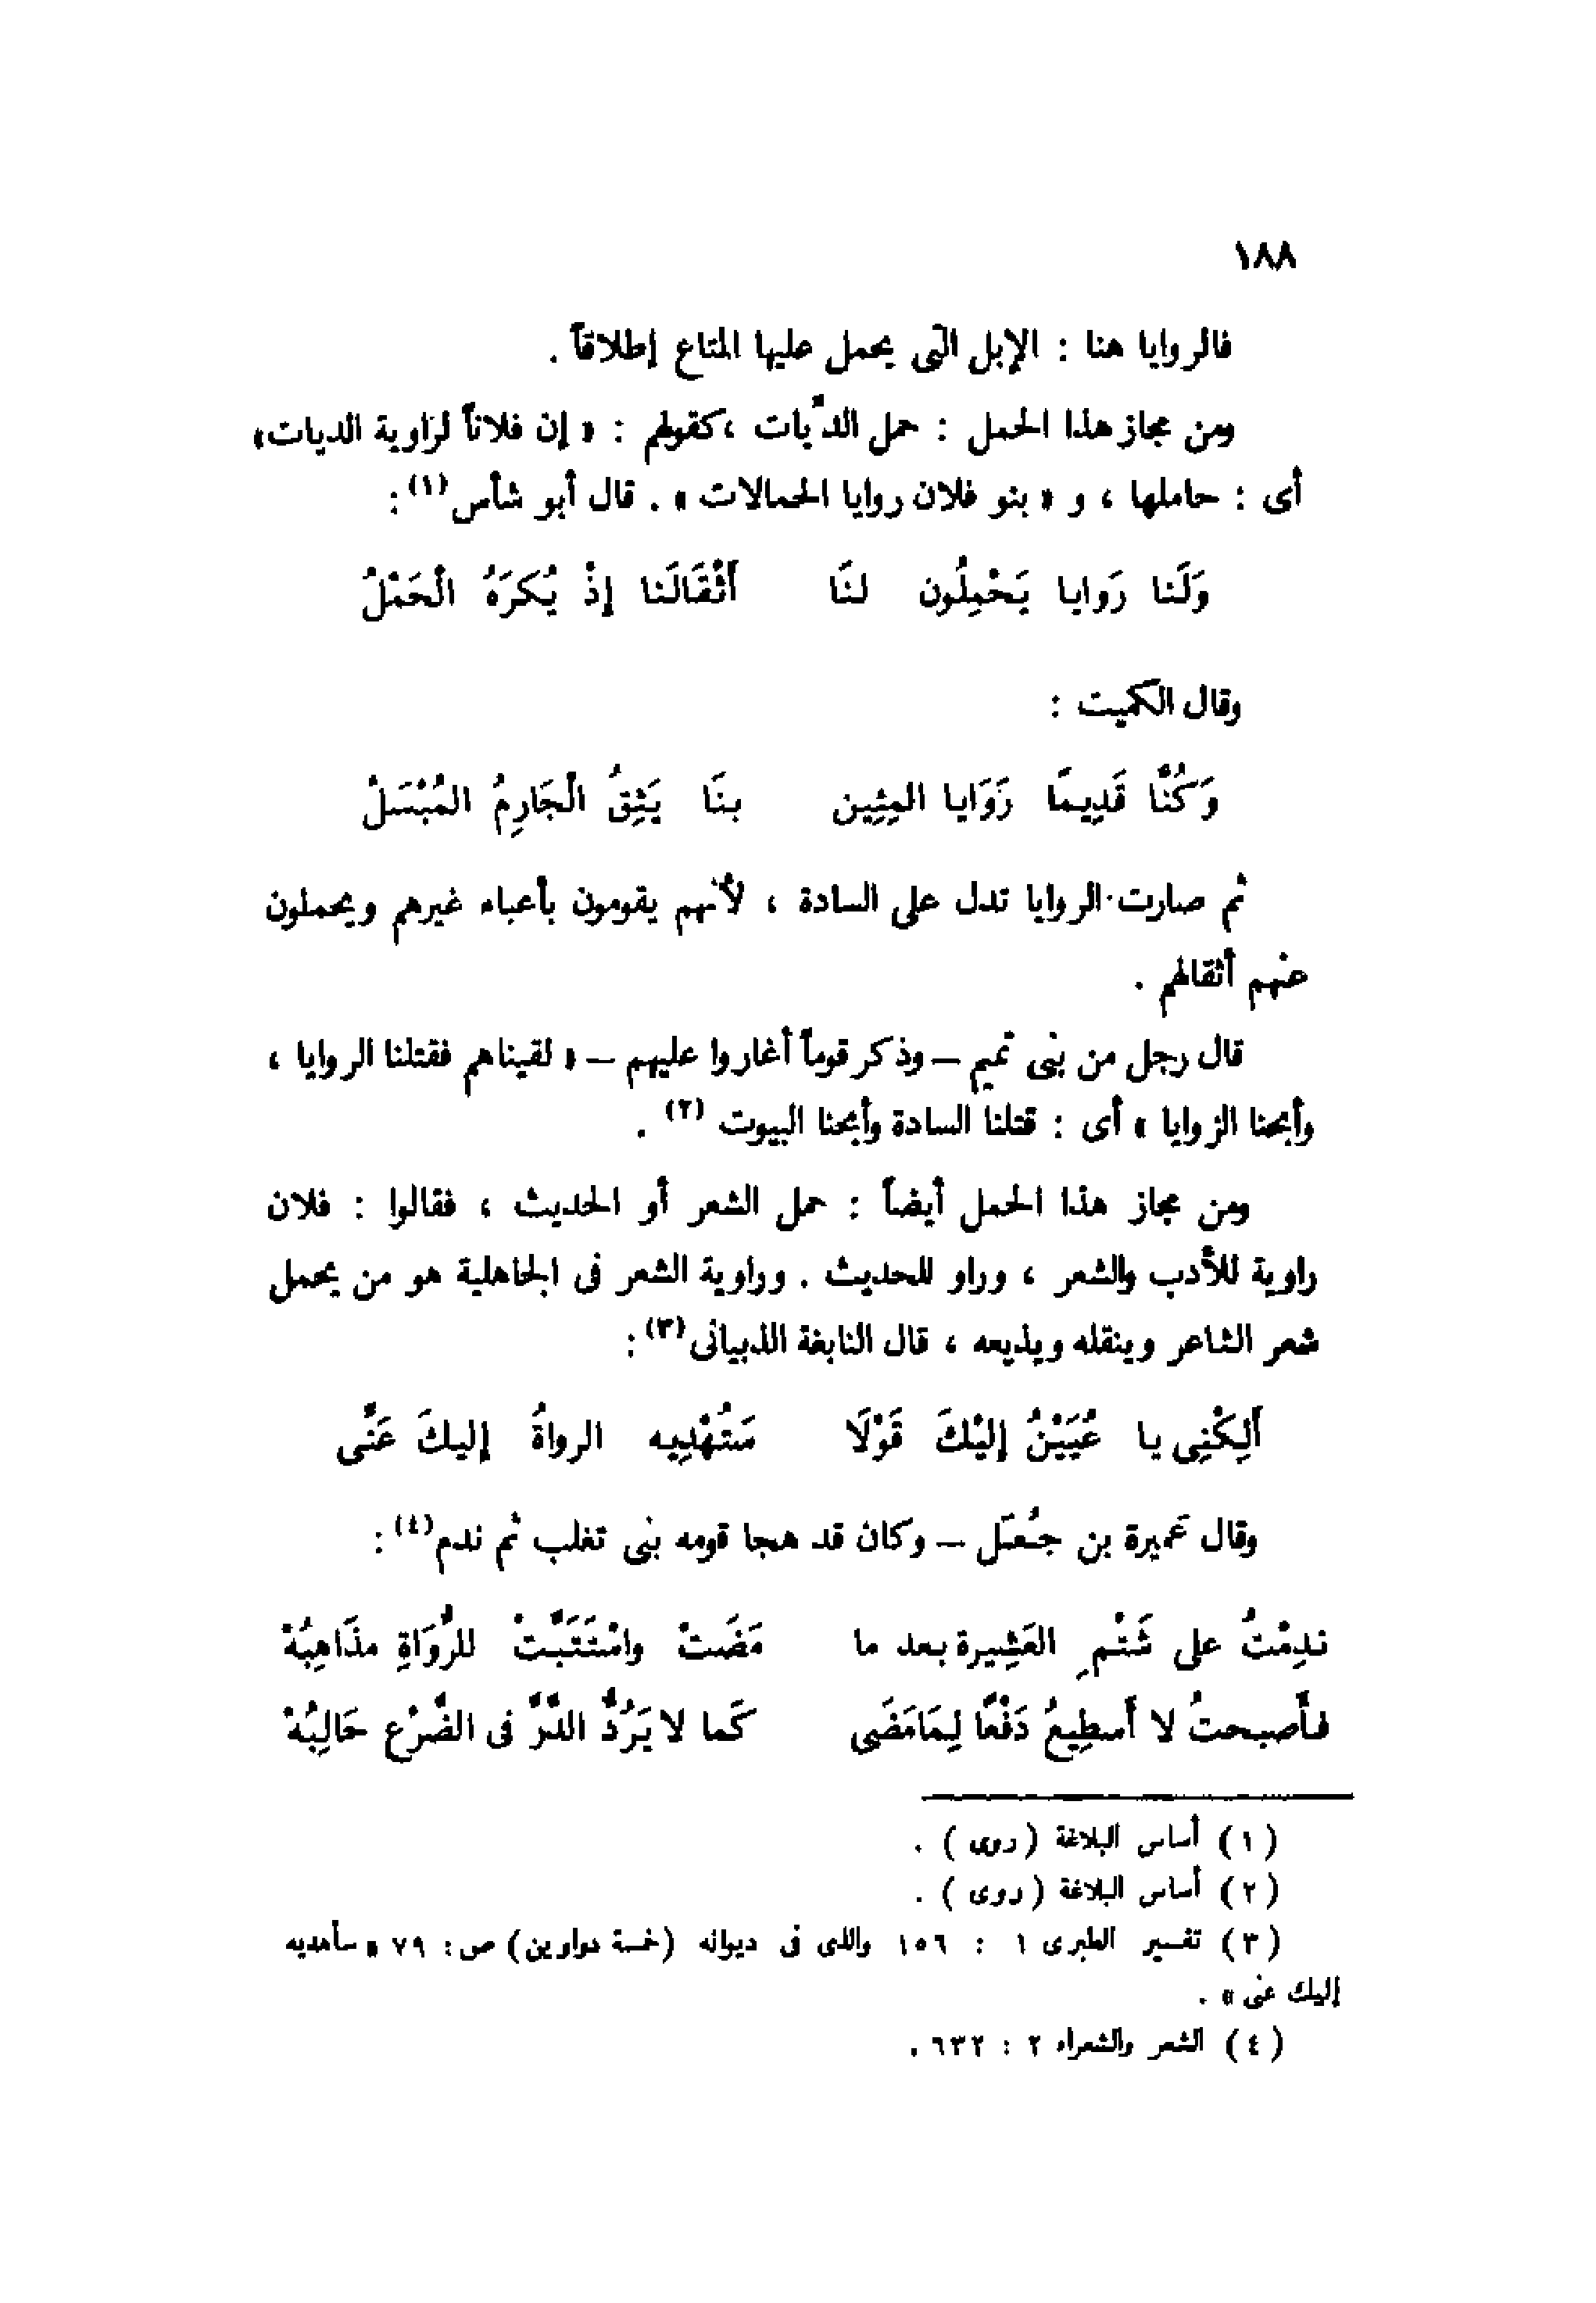 ١٨٨
فالروايا هنا : الإبل التى يحمل عليها المتاع إطلاقاً .
ومن مجاز هذا الحمل : حمل الديّات ، كقولهم : « إن فلاناً لرَاوية الديات»
أى : حاملها ، و « بنو فلان روايا الحمالات » . قال أبو شأس (١) :
وَلَنا رَوايا يَحْمِلُون لنَا أَثْقَالَنا إذْ يُكرَهُ الْحَمْلُ
وقال الكميت :
وَكُنَّا قَدِيمًا رَوَايا المِئِين بنَا يَثِقُ الْجَارِمُ المُبْسَلْ
ثم صارت الروايا تدل على السادة ، لأنهم يقومون بأعباء غيرهم ويحملون
عنهم أثقالهم .
قال رجل من بنى تميم – وذكر قوماً أغاروا عليهم – « لقيناهم فقتلنا الروايا ،
وأبحنا الزوايا » أى : قتلنا السادة وأبحنا البيوت (٢) .
ومن مجاز هذا الحمل أيضاً : حمل الشعر أو الحديث ، فقالوا : فلان
راوية للأدب والشعر ، وراو للحديث . وراوية الشعر فى الجاهلية هو من يحمل
شعر الشاعر وينقله ويذيعه ، قال النابغة الذبيانى (٣) :
أَلِكْنِى يا عُيَيْنُ إليْكَ قَوْلًا سَتُهْدِيه الرواةُ إليكَ عَنِّى
وقال عَميرة بن جُعَل – وكان قد هجا قومه بنى تغلب ثم ندم (٤) :
ندِمْتُ على شَتْمِ العَشِيرة بعد ما مَضَتْ واسْتَتَبَّتْ للرُّوَاةِ مذَاهِبُهْ
فأَصبحتُ لا أَسطِيعُ دَفْعًا لِمَا مَضَى كَما لا يَرُدُّ الدَّرَّ فى الضَّرْع حَالِبُهْ
( ١ ) أساس البلاغة ( روى ) .
( ٢ ) أساس البلاغة ( روى ) .
( ٣ ) تفسير الطبرى ١ : ١٥٦ والذى فى ديوانه (خمسة دواوين) ص : ٧٩ « سأهديه
إليك عنى » .
( ٤ ) الشعر والشعراء ٢ : ٦٣٢ .